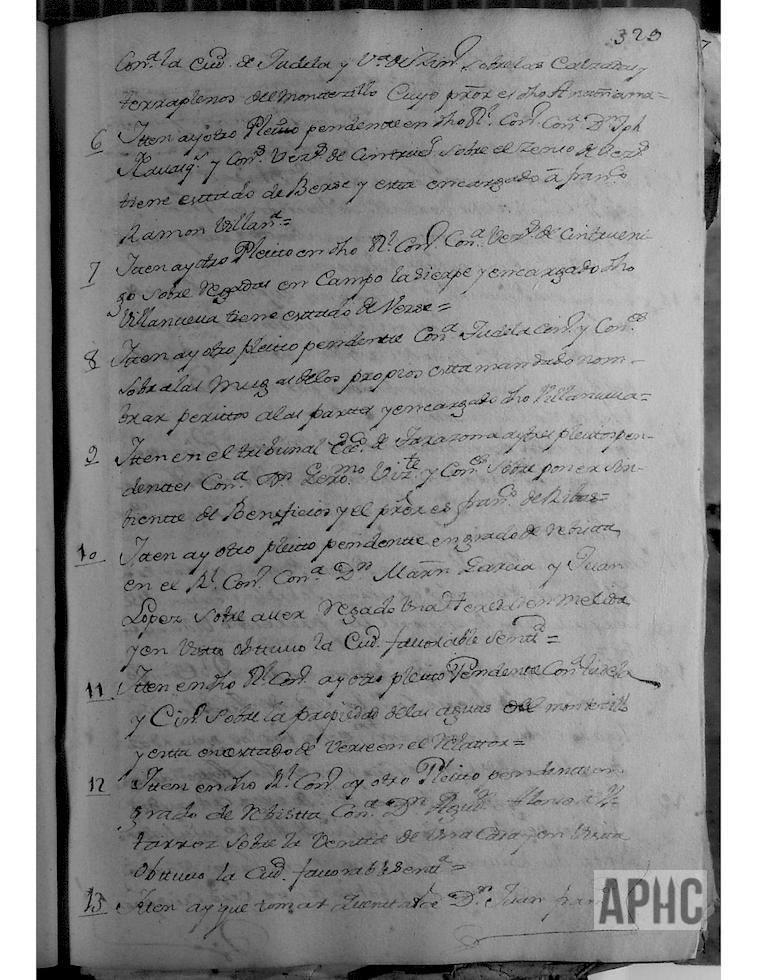 323
Con.ª la Ciu.d de Tudela y V.ª de sobre las Calzadas y
terraplenos del Monterillo Cuyo pror es dho
6 Itten ay otro Pleito pendente en dho R.l Con.o Con.ª Dn Jph
y Con.s Vez.s de Cintrueg.o sobre el
tiene estado de Berse y esta encargado â fran.co
Ramon Villan.ª =
7 Itten ay otro Pleito en dho R.l Con.o Con.ª Vez.s de Cintrueni-
go sobre Regadas en Campo la sierpe y encargado dho
Villanueva tiene estado de Verse =
8 Itten ay otro pleito pendente Con.ª Tudela Cin.o y Con.es
sobre las Mugas de los propios esta mandado nom-
brar perittos a las partes y encargado dho Villanueva =
9 Itten en el tribunal Ecc.o de Tarazona ay otro pleito pen-
dente Con.ª Dn Gero.mo Viz.te y Con.es sobre poner Sir-
biente de Beneficios y el pror es fran.co de Ribas =
10 Itten ay otro pleito pendente en grado de rebista
en el R.l Con.o Con.ª Dn Marn Garcia y Juan
Lopez sobre auer Regado Una Heredad en
y en Vista obtuuo la Ciu.d favorable Sentª =
11 Itten en dho R.l Con.o ay otro pleito Pendente Con.ª Tudela
y Cin.o sobre la propiedad de las aguas del monterillo
y esta en estado de Verse en el Relattor =
12 Itten en dho R.l Con.o ay otro Pleito pendente en
grado de Rebistta Con.ª Dn Alonso
sobre la Venta de Una Casa y en Vista
obtuuo la Ciu.d favorable Sentª =
13 Itten ay que tomar quenta a Dn Juan fran
APHC